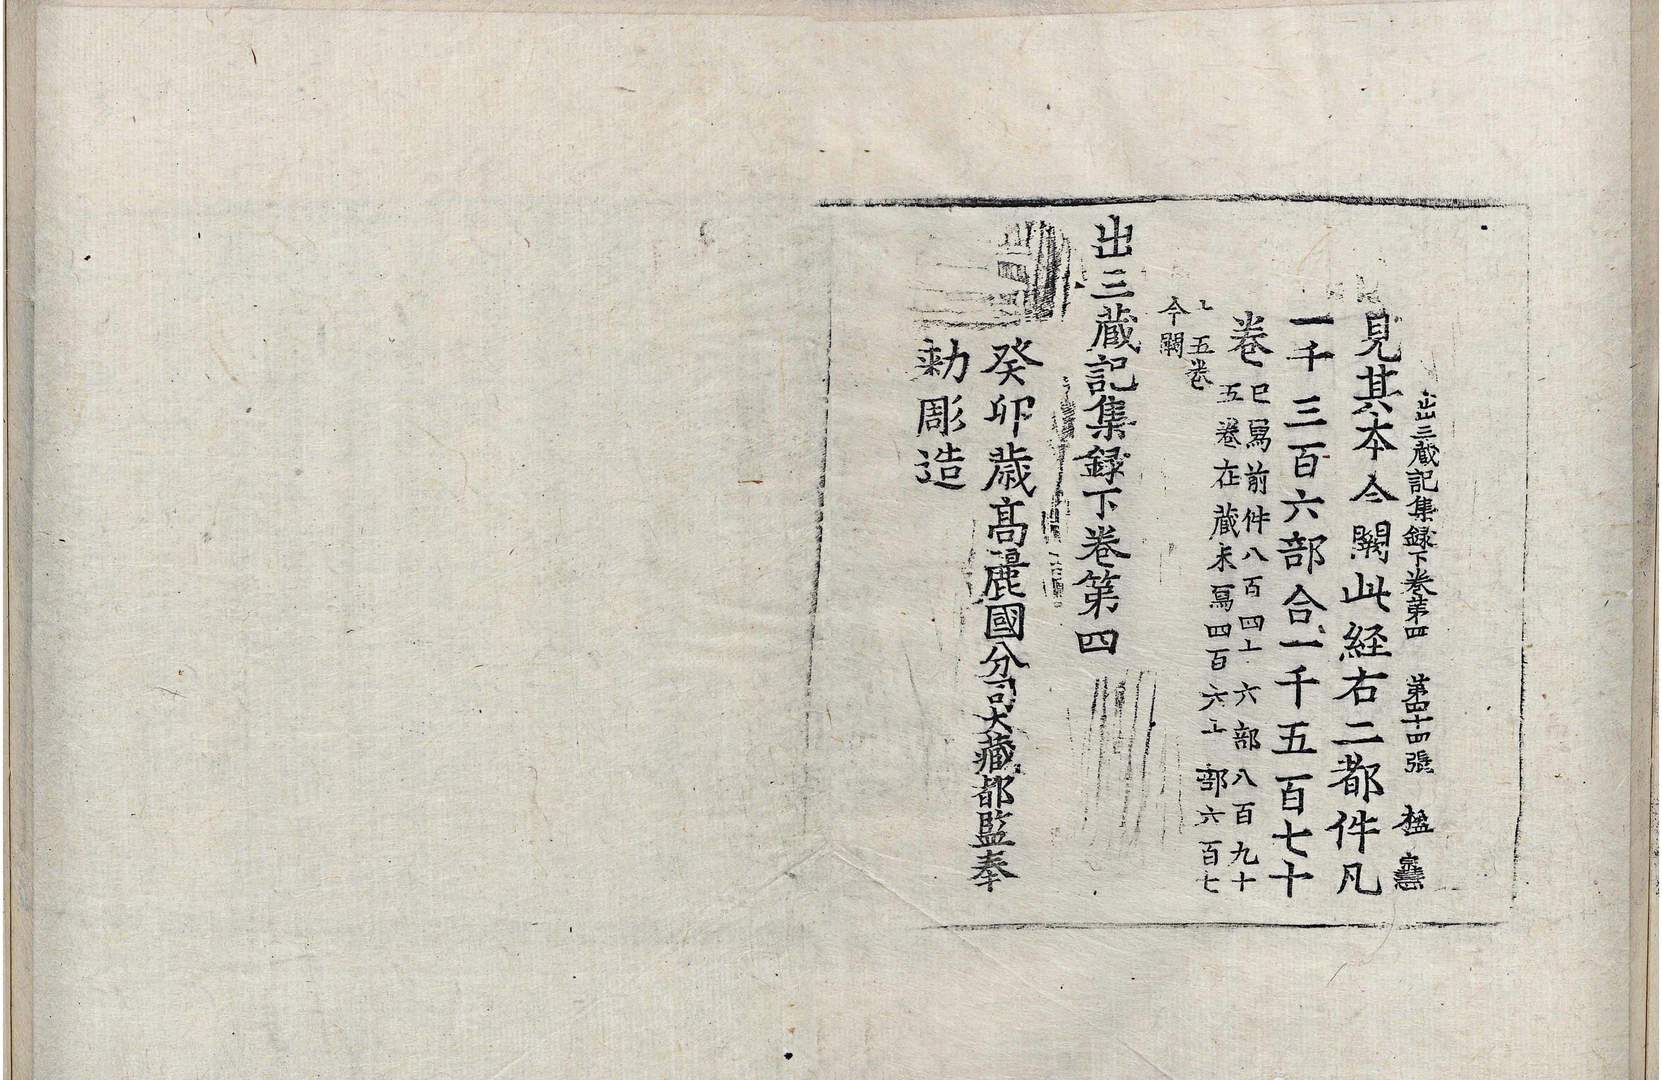 出三蔵記集録下卷第四　第四十四張　楹　宗慧
見其本今闕此経右二都件凡
一千三百六部合一千五百七十
卷
已寫前件八百四十六部八百九十
五卷在蔵未寫四百六十部六百七
五卷
今闕
出三蔵記集録下卷第四
癸卯歲髙麗國分司大藏都監奉
勅彫造